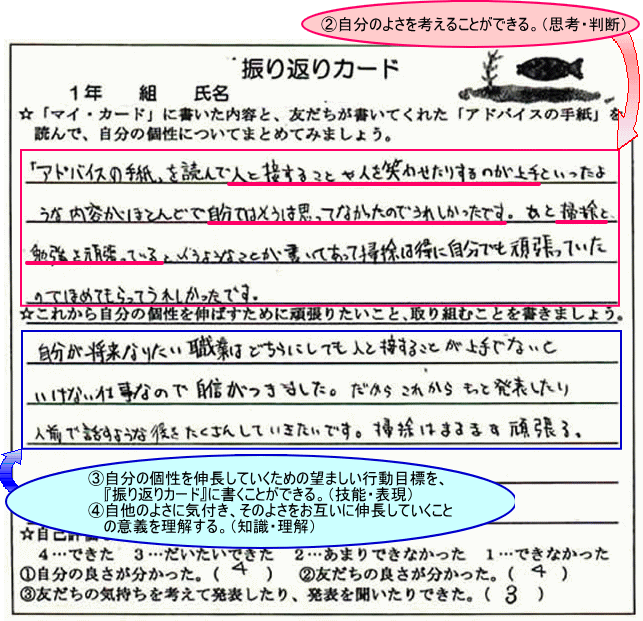 ②自分のよさを考えることができる。（思考・判断）
振り返りカード
1年　組　氏名
☆「マイ・カード」に書いた内容と、友だちが書いてくれた「アドバイスの手紙」を
読んで、自分の個性についてまとめてみましょう。
「アドバイスの手紙」を読んで人と接することや人を笑わせたりするのが上手といったよ
うな内容がほとんどで自分ではそうは思ってなかったのでうれしかったです。あと掃除と、
勉強を頑張っていると、いうようなことが書いてあって掃除は特に自分でも頑張っていた
のでほめてもらってうれしかったです。
☆これから自分の個性を伸ばすために頑張りたいこと、取り組むことを書きましょう。
自分が将来なりたい職業はどちらにしても人と接することが上手でないと
いけない仕事なので自信がつきました。だからこれからもっと発表したり
人前で話すような役をたくさんしていきたいです。掃除はますます頑張る。
③自分の個性を伸長していくための望ましい行動目標を、
『振り返りカード』に書くことができる。（技能・表現）
④自他のよさに気付き、そのよさをお互いに伸長していくこと
の意義を理解する。（知識・理解）
☆自己評価
4…できた　3…だいたいできた　2…あまりできなかった　1…できなかった
①自分の良さが分かった。（　4　）　②友だちの良さが分かった。（　4　）
③友だちの気持ちを考えて発表したり、発表を聞いたりできた。（　3　）